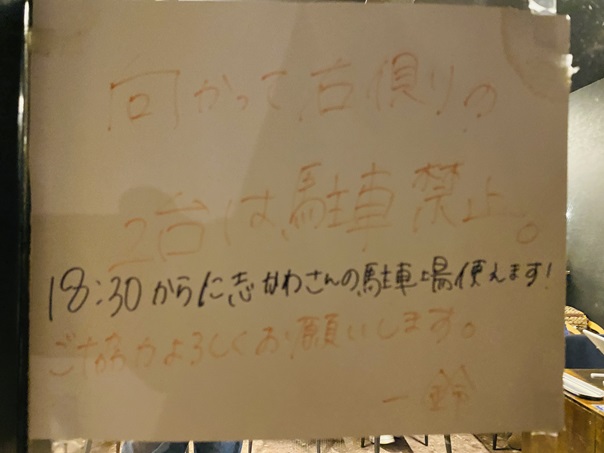 向かって右側りの
2台は駐車禁止。
18:30からに志かわさんの駐車場使えます!
ご協力よろしくお願いします。
一鈴